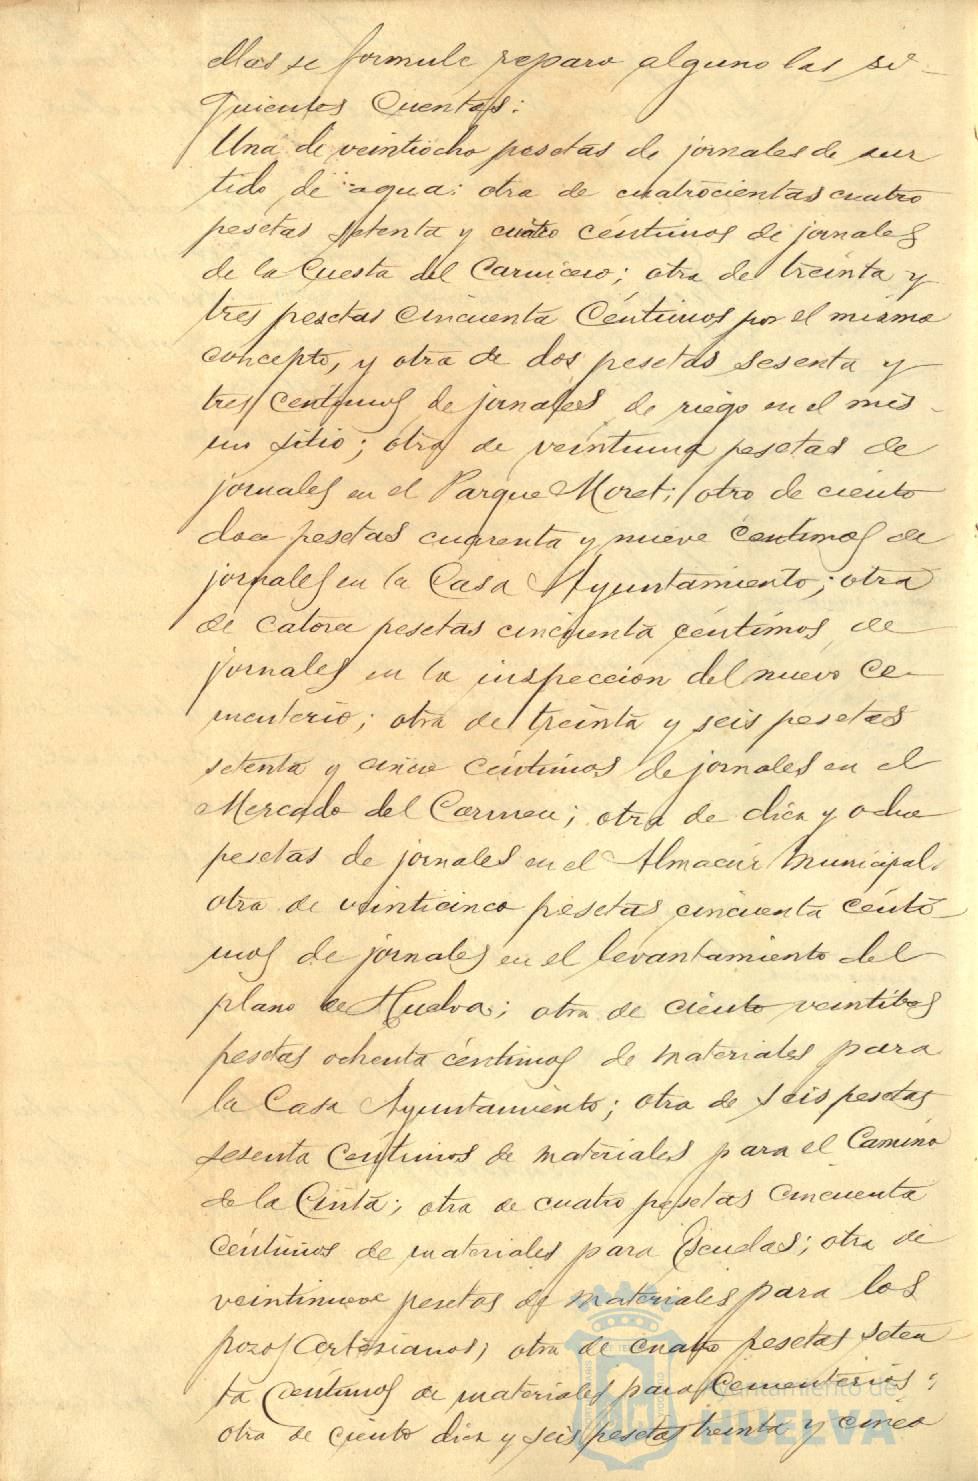 ellas se formule reparo alguno las si-
guientes Cuentas:
Una de veintiocho pesetas de jornales de sur
tido de agua: otra de cuatrocientas cuatro
pesetas setenta y cuatro céntimos de jornales
de la Cuesta del Carnicero; otra de treinta y
tres pesetas cincuenta Céntimos por el mismo
concepto, y otra de dos pesetas sesenta y
tres Centimos de jornales de riego en el mis-
mo sitio; otra de veintiuna pesetas de
jornales en el Parque Moret; otro de ciento
doce pesetas cuarenta y nueve Centimos de
jornales en la Casa Ayuntamiento; otra
de catorce pesetas cincuenta céntimos de
jornales en la inspeccion del nuevo Ce-
menterio; otra de treinta y seis pesetas
setenta y cinco Céntimos de jornales en el
Mercado del Carmen; otra de diez y ocho
pesetas de jornales en el Almacén Municipal.
otra de veinticinco pesetas cincuenta cénti-
mos de jornales en el levantamiento del
plano de Huelva; otra de ciento veintitres
pesetas ochenta céntimos de materiales para
la Casa Ayuntamiento; otra de seis pesetas
sesenta Céntimos de materiales para el Camino
de la Cinta; otra de cuatro pesetas Cincuenta
Céntimos de materiales para Escuelas; otra de
veintinueve pesetas de materiales para los
pozos Artesianos; otra de cuatro pesetas seten
ta Céntimos de materiales para Cementerios;
otra de ciento diez y seis pesetas treinta y cinco
Ayuntamiento de
HUELVA